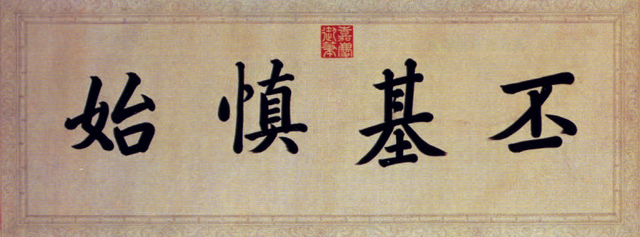 丕基慎始
嘉慶御筆